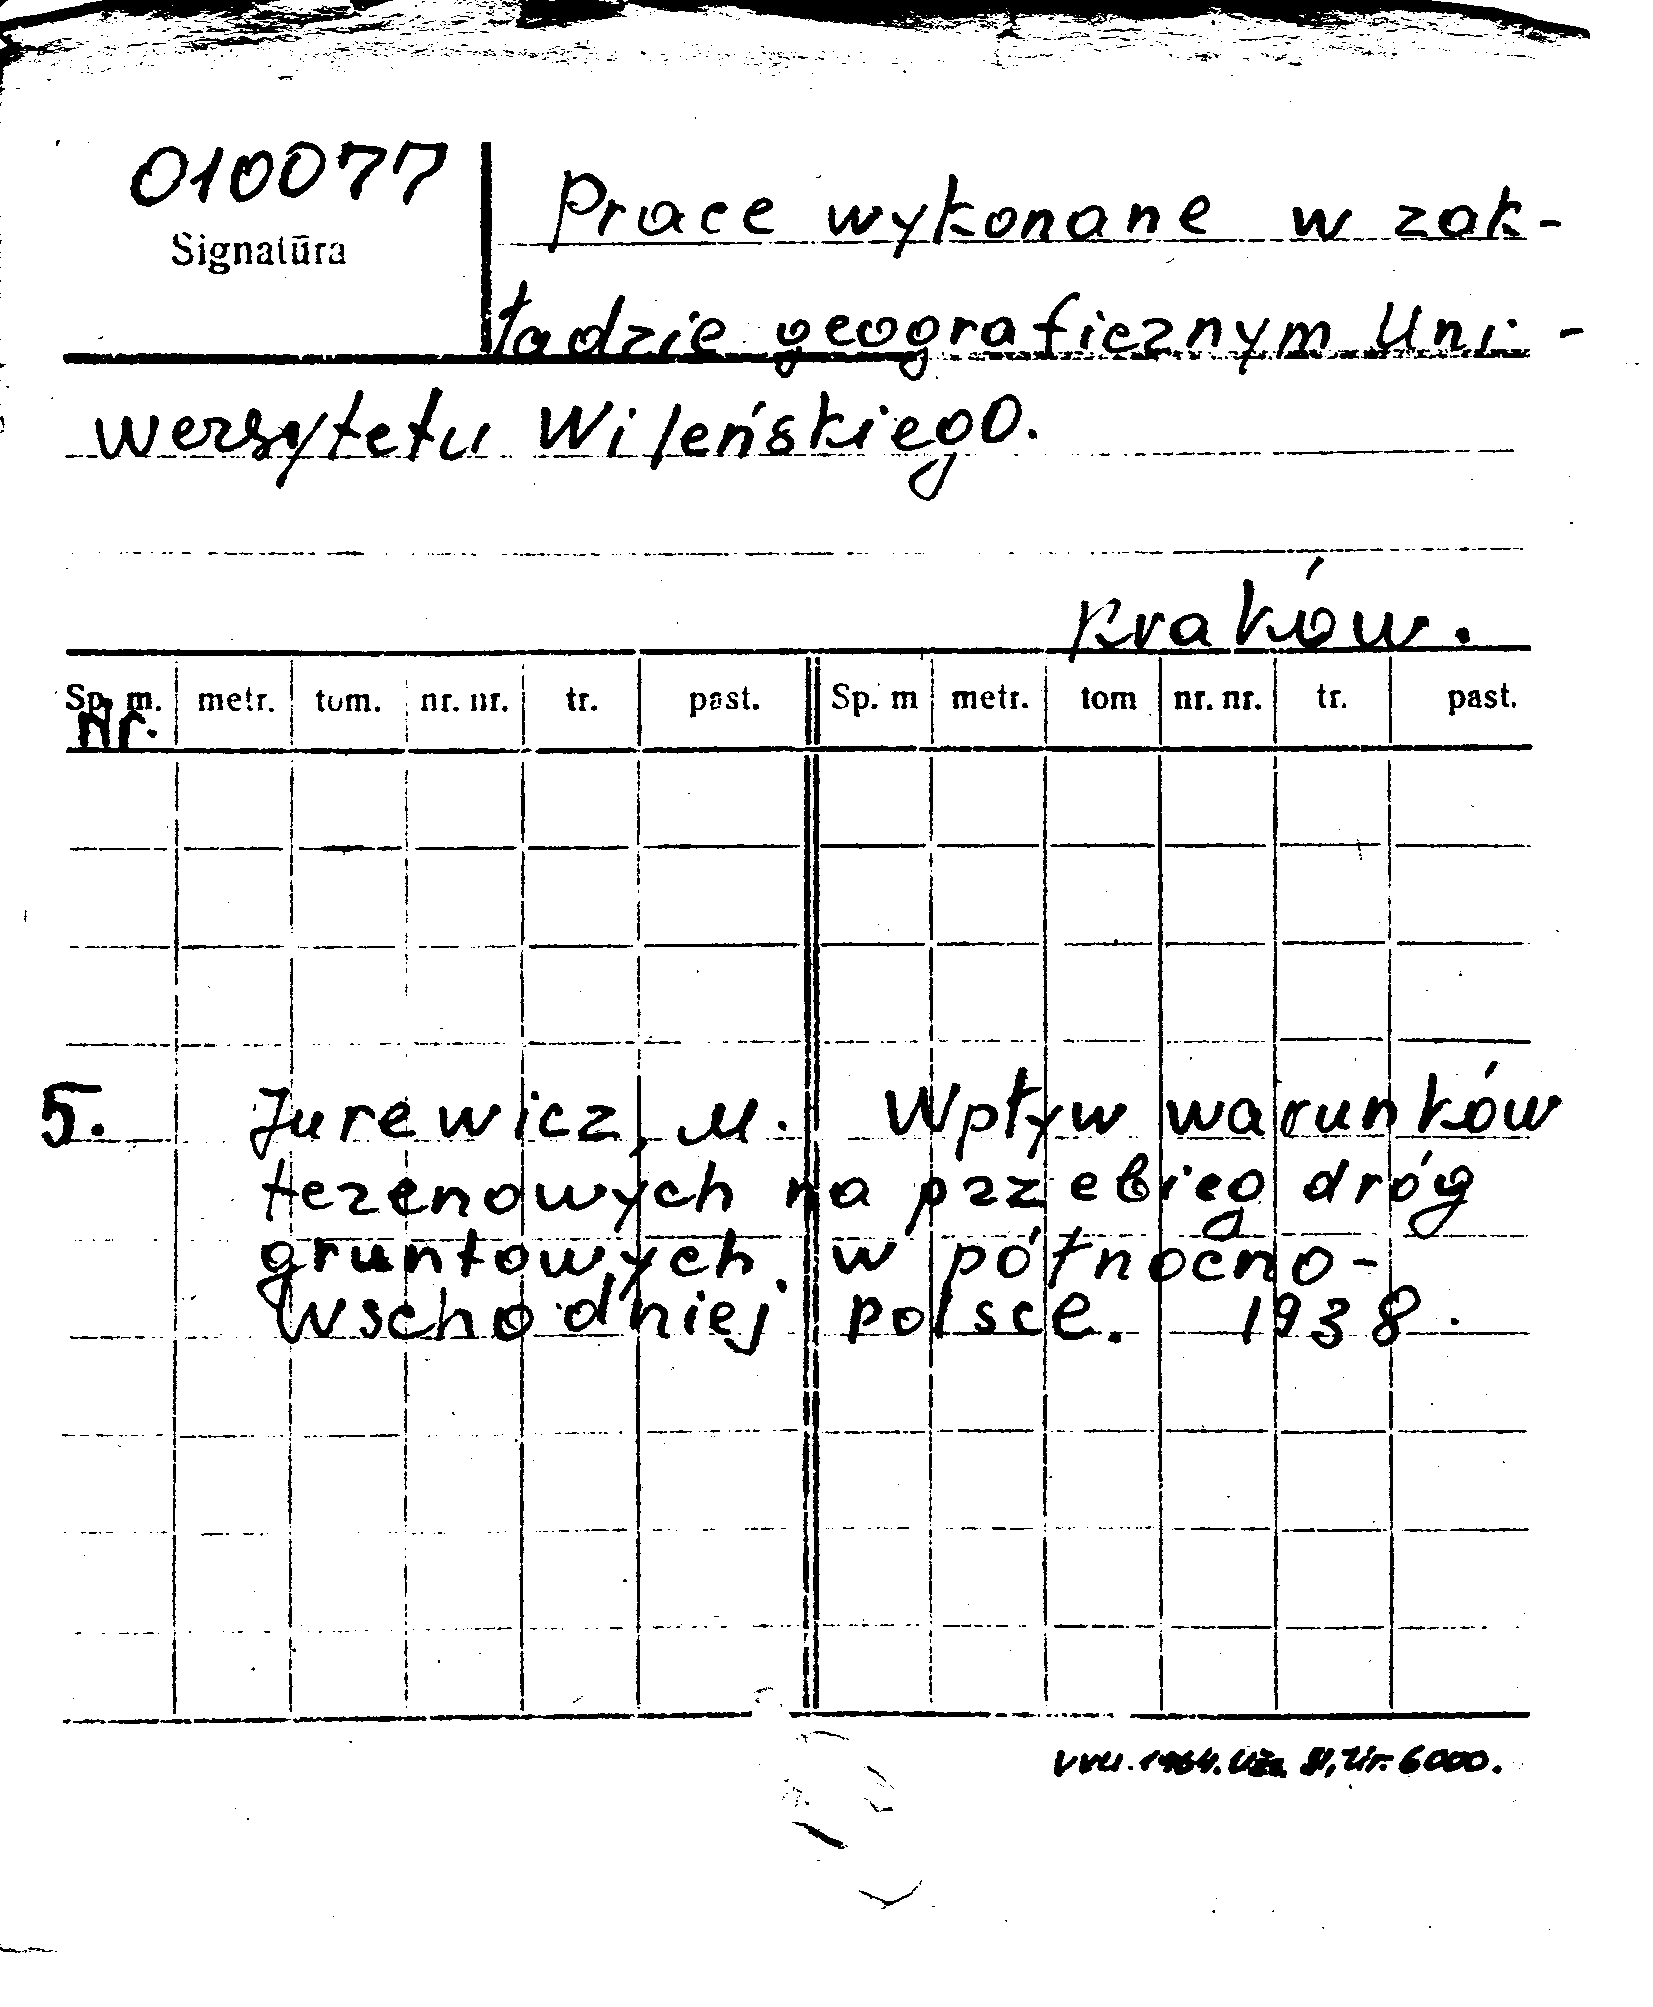 010077
Signatūra
Prace wykonane w zak-
ładzie geograficznym Uni-
wersytetu Wileńskiego.
Kraków.
Sp. m. metr. tom. nr. nr. tr. past. Sp. m metr. tom nr. nr. tr. past.
Nr.
5. Jurewicz, M. Wpływ warunków
terenowych na przebieg dróg
gruntowych w północno-
wschodniej Polsce. 1938.
VVU. 1964. Užs. Tir. 6000.